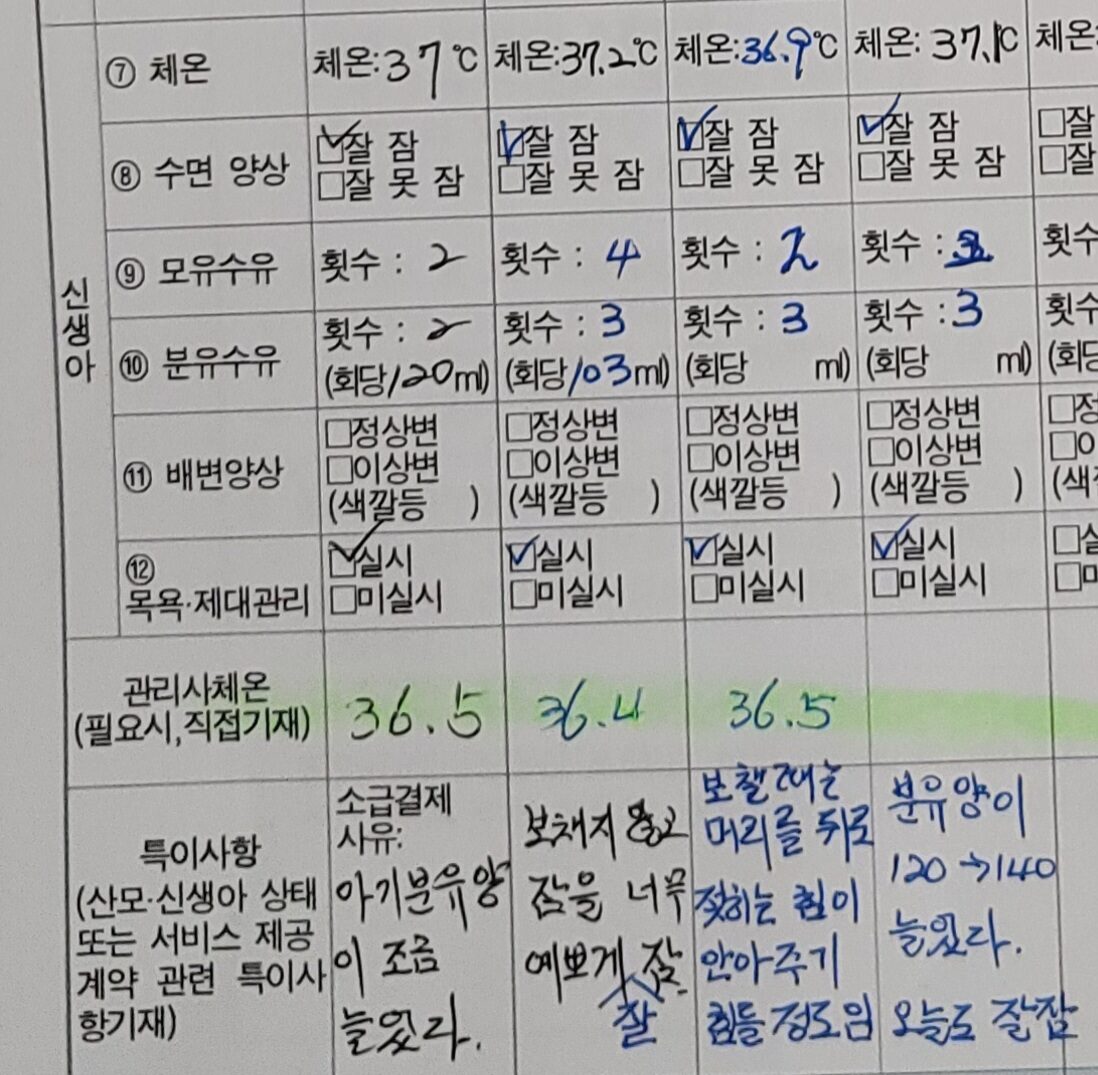 ⑦ 체온 체온:37℃ 체온:37.2℃ 체온:36.9℃ 체온:37.1℃ 체온:
⑧ 수면 양상 ☑잘 잠 ☑잘 잠 ☑잘 잠 ☑잘 잠 □잘
□잘 못 잠 □잘 못 잠 □잘 못 잠 □잘 못 잠 □잘
신생아
⑨ 모유수유 횟수 : 2 횟수 : 4 횟수 : 2 횟수 : 횟수
⑩ 분유수유 횟수 : 2 횟수 : 3 횟수 : 3 횟수 : 3 횟수
(회당120ml) (회당103ml) (회당 ml) (회당 ml) (회당
⑪ 배변양상 □정상변 □정상변 □정상변 □정상변 □정
□이상변 □이상변 □이상변 □이상변 □이
(색깔등 ) (색깔등 ) (색깔등 ) (색깔등 ) (색
⑫ 목욕·제대관리 ☑실시 ☑실시 ☑실시 ☑실시 □실
□미실시 □미실시 □미실시 □미실시 □미
관리사체온
(필요시,직접기재) 36.5 36.4 36.5
특이사항
(산모·신생아 상태
또는 서비스 제공
계약 관련 특이사
항기재)
소급결제
사유:
아기분유양
이 조금
늘었다.
보채지 않고
잠을 너무
예쁘게 잘
잠.
보챌때는
머리를 뒤로
젖히는 힘이
안아주기
힘들 정도임
분유양이
120→140
늘었다.
오늘도 잘잠